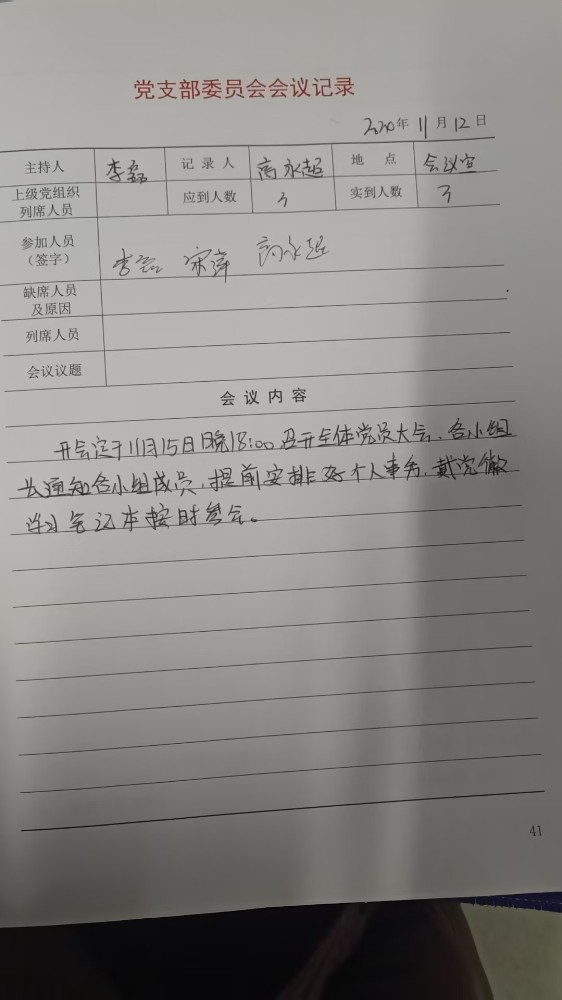 党支部委员会会议记录
2020年 11月 12日
主持人 李磊 记录人 高永超 地点 会议室
上级党组织列席人员 应到人数 3 实到人数 3
参加人员（签字） 李磊 宋萍 高永超
缺席人员及原因
列席人员
会议议题
会议内容
开会定于11月15日晚18:00召开全体党员大会，各小组
长通知各小组成员，提前安排好个人事务，戴党徽
学习笔记本按时参会。
41